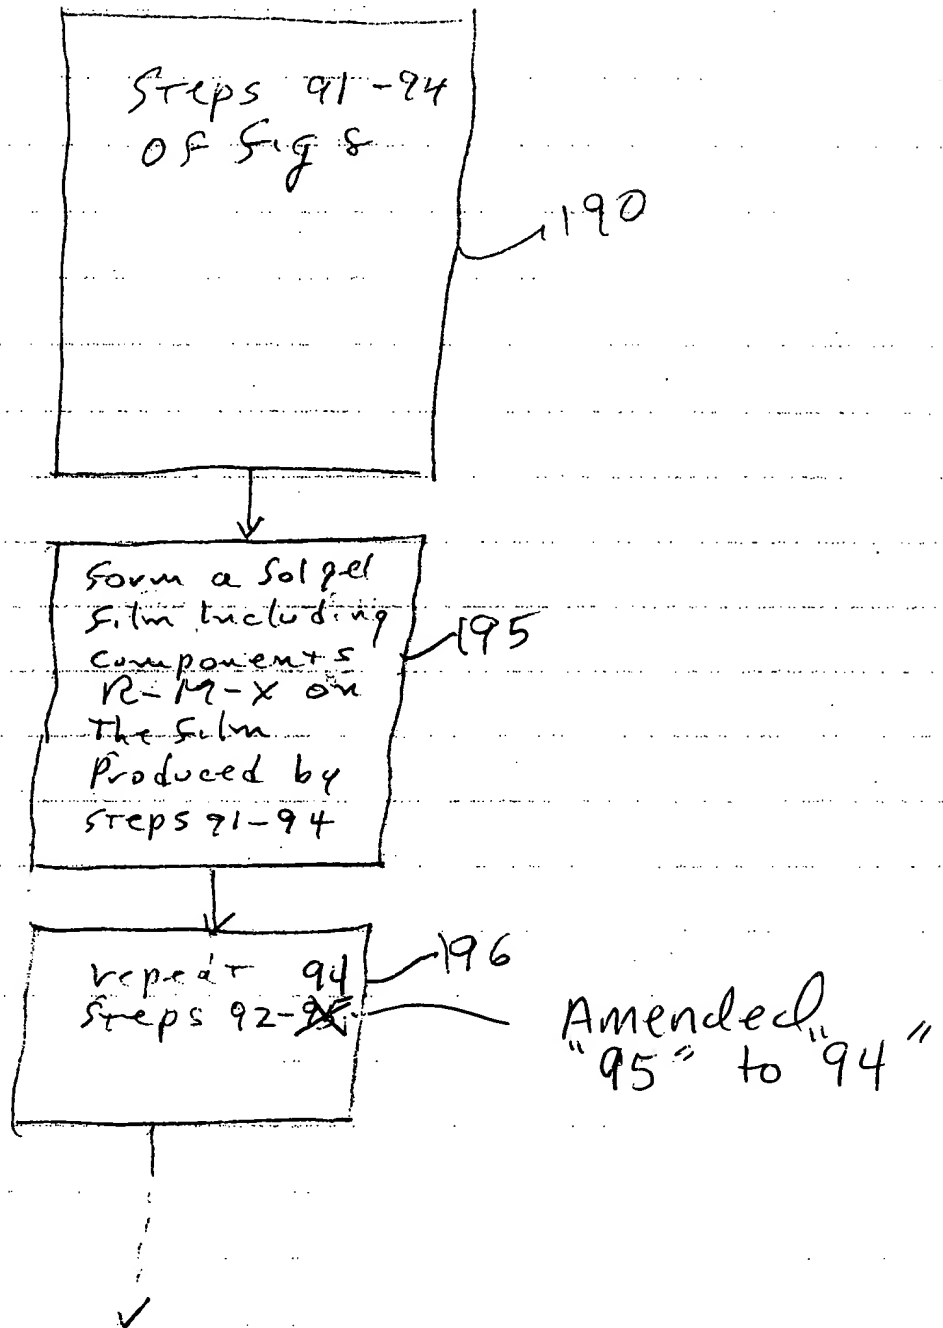 Steps 91-94
of fig 8
190
Form a Sol gel
film Including
components
R-M-X on
The film
Produced by
Steps 91-94
195
repeat 94
Steps 92-95
196
Amended
"95" to "94"